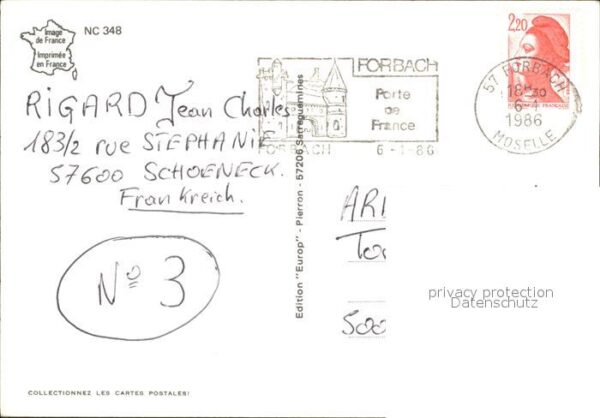 Image
de France
Imprimée
en France
NC 348
FORBACH
Porte
de
France
FORBACH 6-1-86
2,20
57 FORBACH
18H30
6-1
1986
MOSELLE
RIGARD Jean Charles
183/2 rue STEPHANIE
57600 SCHOENECK.
Frankreich.
N° 3
Edition "Europ" - Pierron - 57206 Sarreguemines
ARI
To
500
privacy protection
Datenschutz
COLLECTIONNEZ LES CARTES POSTALES!